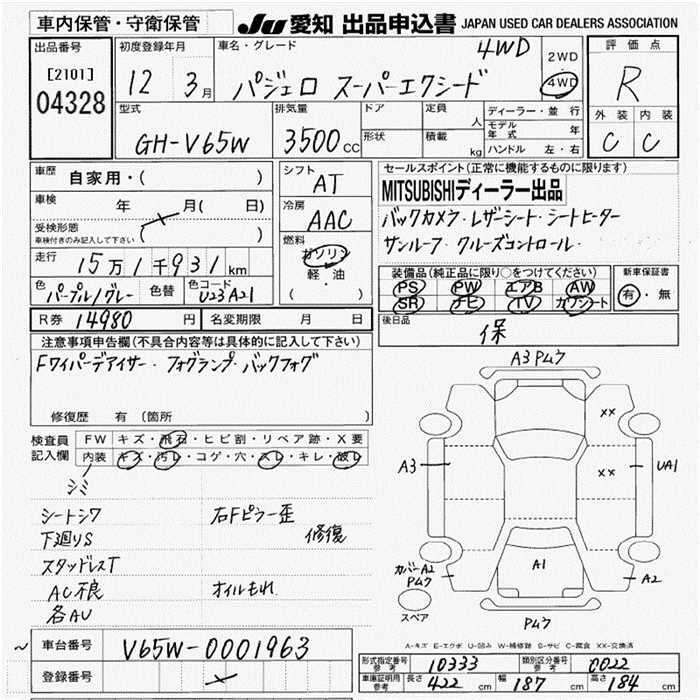 車内保管・守衛保管
JU 愛知 出品申込書 JAPAN USED CAR DEALERS ASSOCIATION
出品番号
[2101]
04328
初度登録年月
12 3月
車名・グレード
4WD
パジェロ スーパーエクシード
2WD
4WD
評価点
R
外装 内装
C C
型式
GH-V65W
排気量
3500 CC
ドア
形状
定員
人
積載
kg
ディーラー・並行
モデル年式 年
ハンドル 左・右
車歴
自家用・( )
車検
年 月( 日)
受検形態
車検付きのみ記入して下さい
( )
走行
15万1千931km
色
パープル/グレー
色替
色コード
U23A21
シフト
AT
冷房
AAC
燃料
ガソリン
軽・油
( )
セールスポイント(正常に機能するものに限ります)
MITSUBISHIディーラー出品
バックカメラ・レザーシート・シートヒーター
サンルーフ・クルーズコントロール・
装備品(純正品に限り○をつけてください)
PS PW エアB AW
SR ナビ TV カワシート
新車保証書
有・無
R券 14980円
名変期限 月 日
後日品
保
注意事項申告欄(不具合内容等は具体的に記入して下さい)
Fワイパーデアイサー・フォグランプ・バックフォグ
修復歴 有 (箇所 )
検査員
記入欄
FW キズ・飛石・ヒビ割・リペア跡・X要
内装 キズ・汚レ・コゲ・穴・スレ・キレ・破レ
シミ
シートシワ
下廻りS
スタッドレスT
AC不良
各AU
右Fピラー歪
修復
オイルもれ
A3 Pムラ
××
××
A3
UA1
A1
カバーA2
Pムラ
A2
スペア
Pムラ
A-キズ E-エクボ U-凹み W-補修跡 S-サビ C-腐食 XX-交換済
車台番号
V65W-0001963
登録番号
型式指定番号
参考
10333
類別区分番号
参考
0022
車庫証明用
参考
長さ 422 cm 幅 187 cm 高さ 184 cm